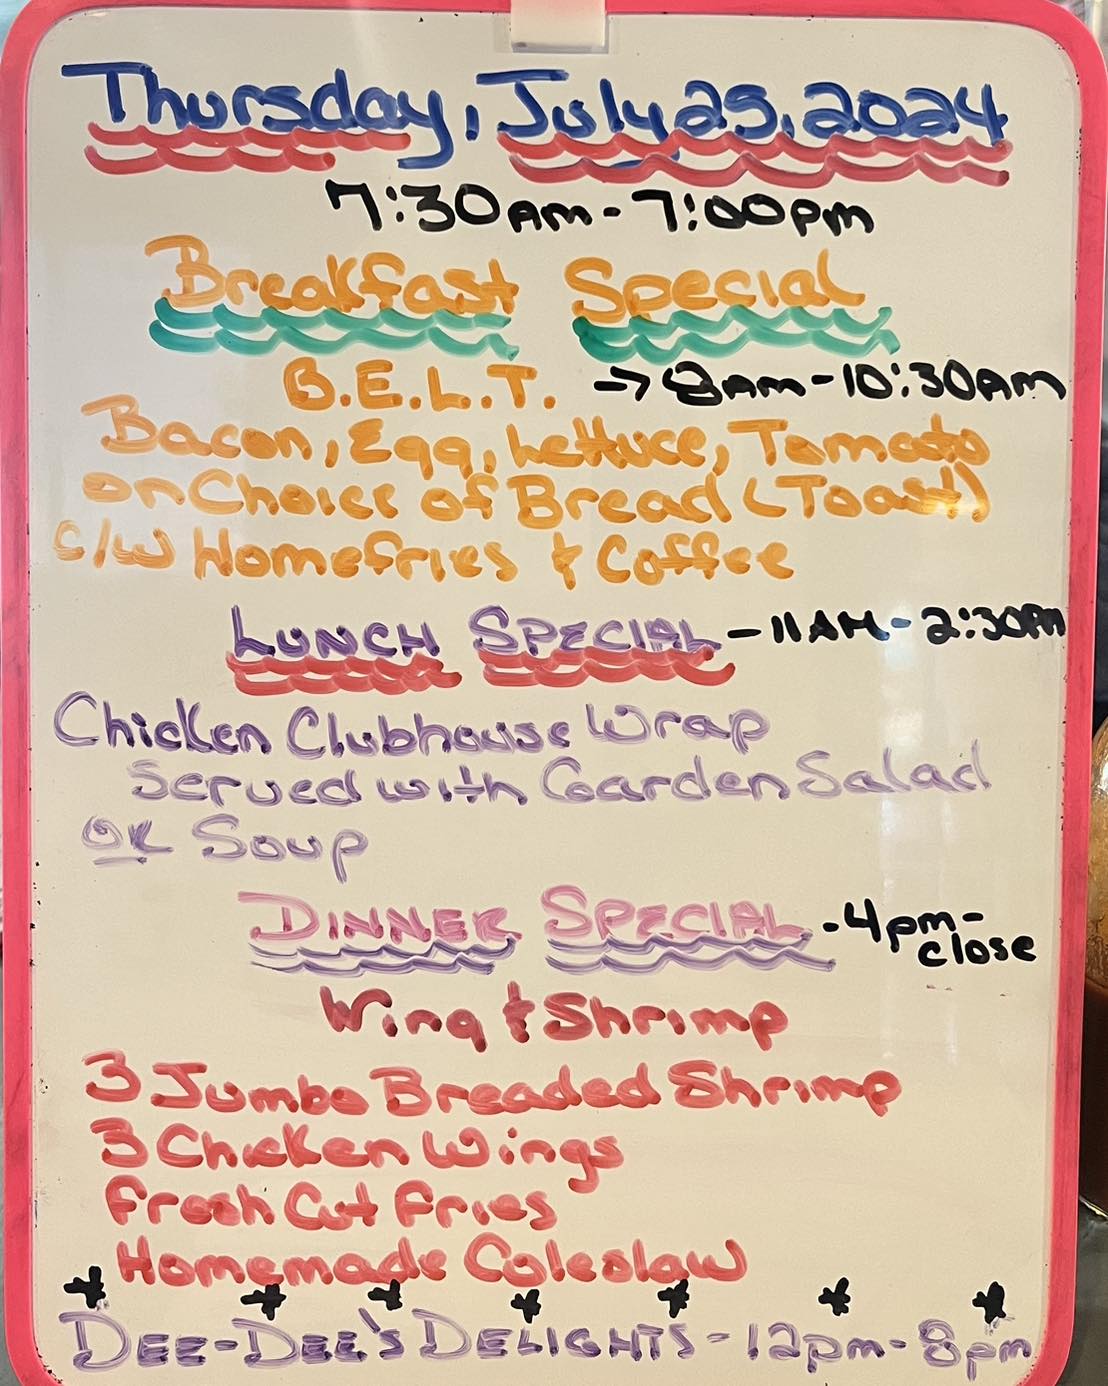 Thursday, July 25, 2024
7:30am - 7:00pm
Breakfast Special
B.E.L.T. → 8am - 10:30am
Bacon, Egg, Lettuce, Tomato
on Choice of Bread (Toast)
c/w Homefries & Coffee
LUNCH SPECIAL - 11AM - 2:30PM
Chicken Clubhouse Wrap
Served with Garden Salad
OR Soup
DINNER SPECIAL - 4pm - close
Wing & Shrimp
3 Jumbo Breaded Shrimp
3 Chicken Wings
Fresh Cut Fries
Homemade Coleslaw
DEE-DEE'S DELIGHTS - 12pm - 8pm